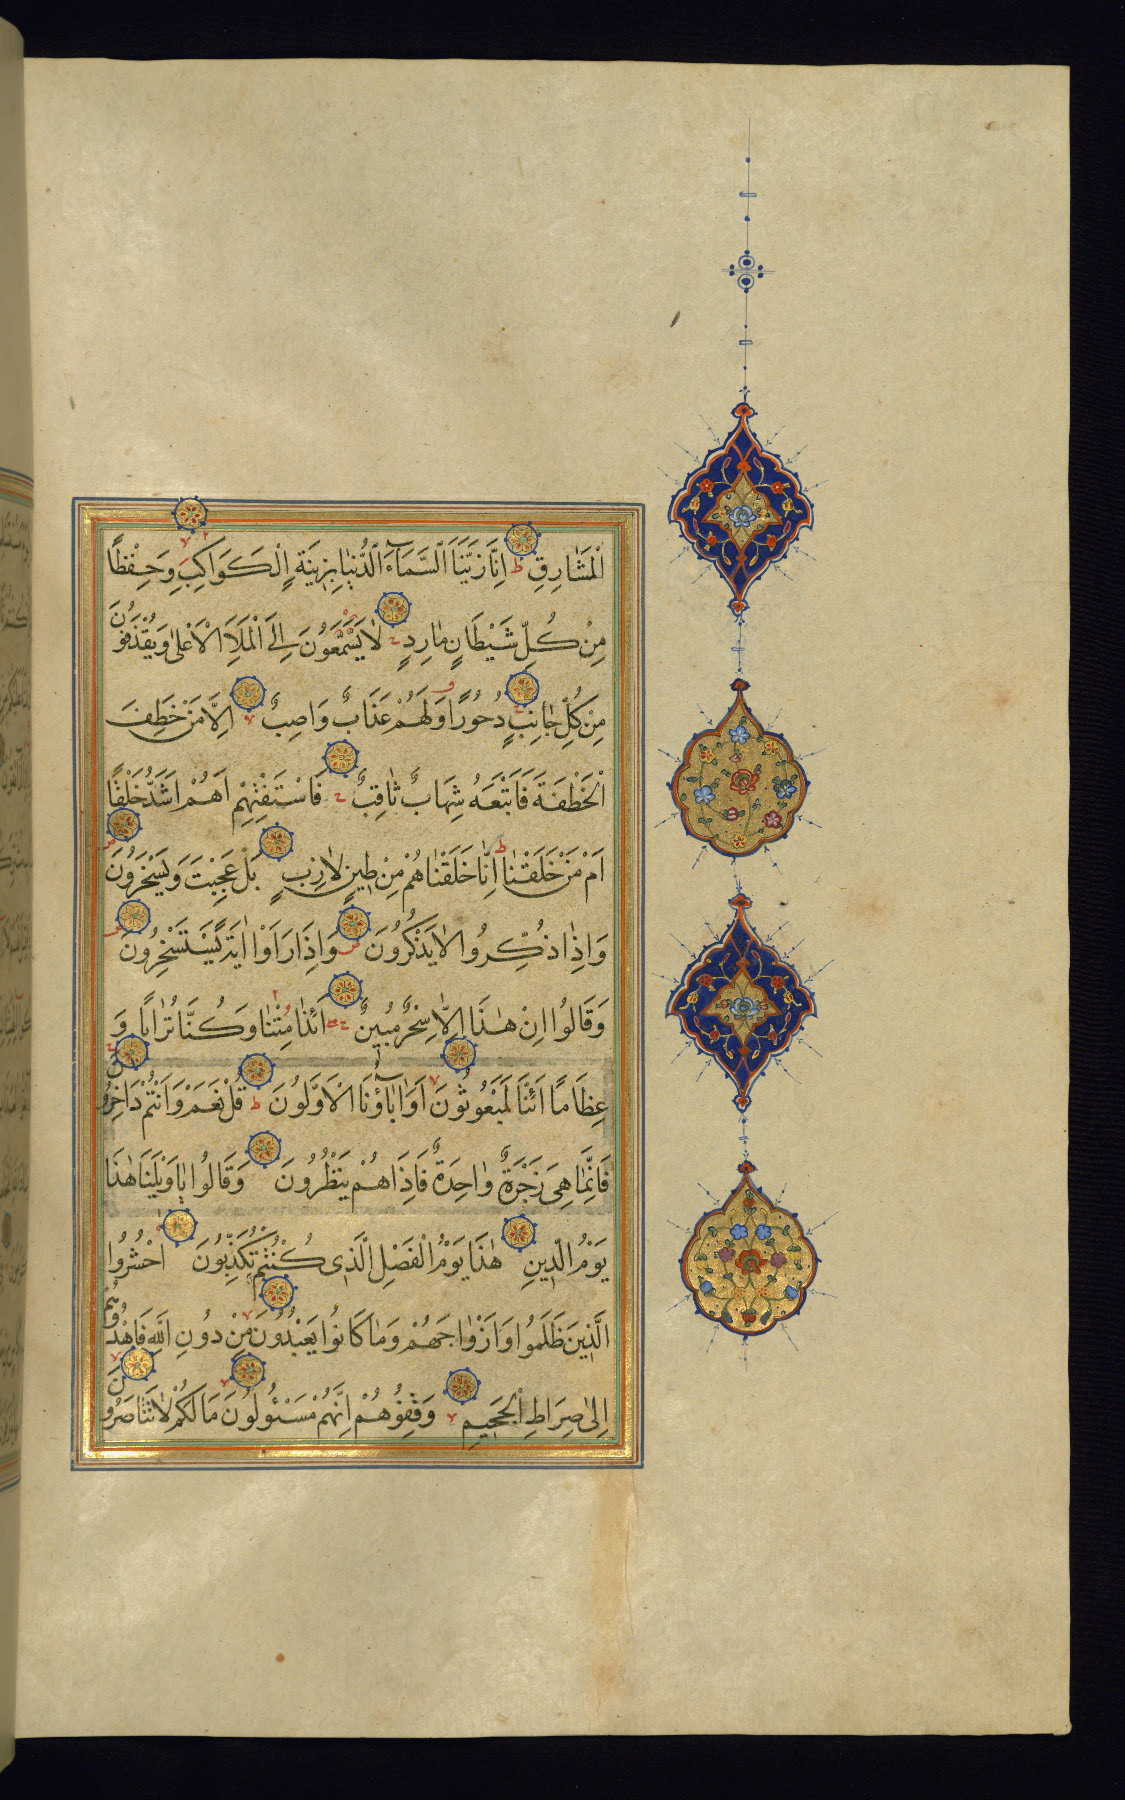 الْمَشَارِقِ ط اِنَّا زَيَّنَّا السَّمَآءَ الدُّنْيَا بِزِينَةٍ الْكَوَاكِبِ وَحِفْظًا
مِنْ كُلِّ شَيْطَانٍ مَارِدٍ ج لَا يَسَّمَّعُونَ اِلَى الْمَلَاِ الْاَعْلٰى وَيُقْذَفُونَ
مِنْ كُلِّ جَانِبٍ دُحُورًا وَلَهُمْ عَذَابٌ وَاصِبٌ لا اِلَّا مَنْ خَطِفَ
الْخَطْفَةَ فَاَتْبَعَهُ شِهَابٌ ثَاقِبٌ فَاسْتَفْتِهِمْ اَهُمْ اَشَدُّ خَلْقًا
اَمْ مَنْ خَلَقْنَا ط اِنَّا خَلَقْنَاهُمْ مِنْ طِينٍ لَازِبٍ بَلْ عَجِبْتَ وَيَسْخَرُونَ ص
وَاِذَا ذُكِّرُوا لَا يَذْكُرُونَ ص وَاِذَا رَاَوْا اٰيَةً يَسْتَسْخِرُونَ ص
وَقَالُوا اِنْ هٰذَا اِلَّا سِحْرٌ مُبِينٌ ج اَئِذَا مِتْنَا وَكُنَّا تُرَابًا وَ
عِظَامًا اَئِنَّا لَمَبْعُوثُونَ لا اَوَاٰبَآؤُنَا الْاَوَّلُونَ ط قُلْ نَعَمْ وَاَنْتُمْ دَاخِرُونَ
فَاِنَّمَا هِيَ زَجْرَةٌ وَاحِدَةٌ فَاِذَا هُمْ يَنْظُرُونَ وَقَالُوا يَا وَيْلَنَا هٰذَا
يَوْمُ الدِّينِ هٰذَا يَوْمُ الْفَصْلِ الَّذِي كُنْتُمْ بِهِ تُكَذِّبُونَ اُحْشُرُوا
الَّذِينَ ظَلَمُوا وَاَزْوَاجَهُمْ وَمَا كَانُوا يَعْبُدُونَ لا مِنْ دُونِ اللّٰهِ فَاهْدُوهُمْ
اِلٰى صِرَاطِ الْجَحِيمِ لا وَقِفُوهُمْ اِنَّهُمْ مَسْئُولُونَ لا مَا لَكُمْ لَا تَنَاصَرُونَ